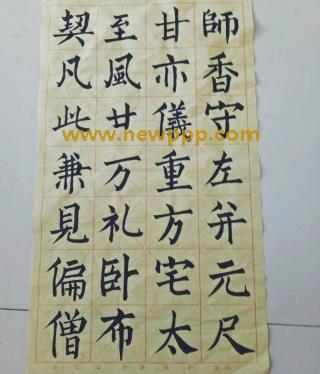 師香守左并元尺
甘亦儀重方宅太
至風廿万礼卧布
契凡此兼見偏僧
www.newppp.com